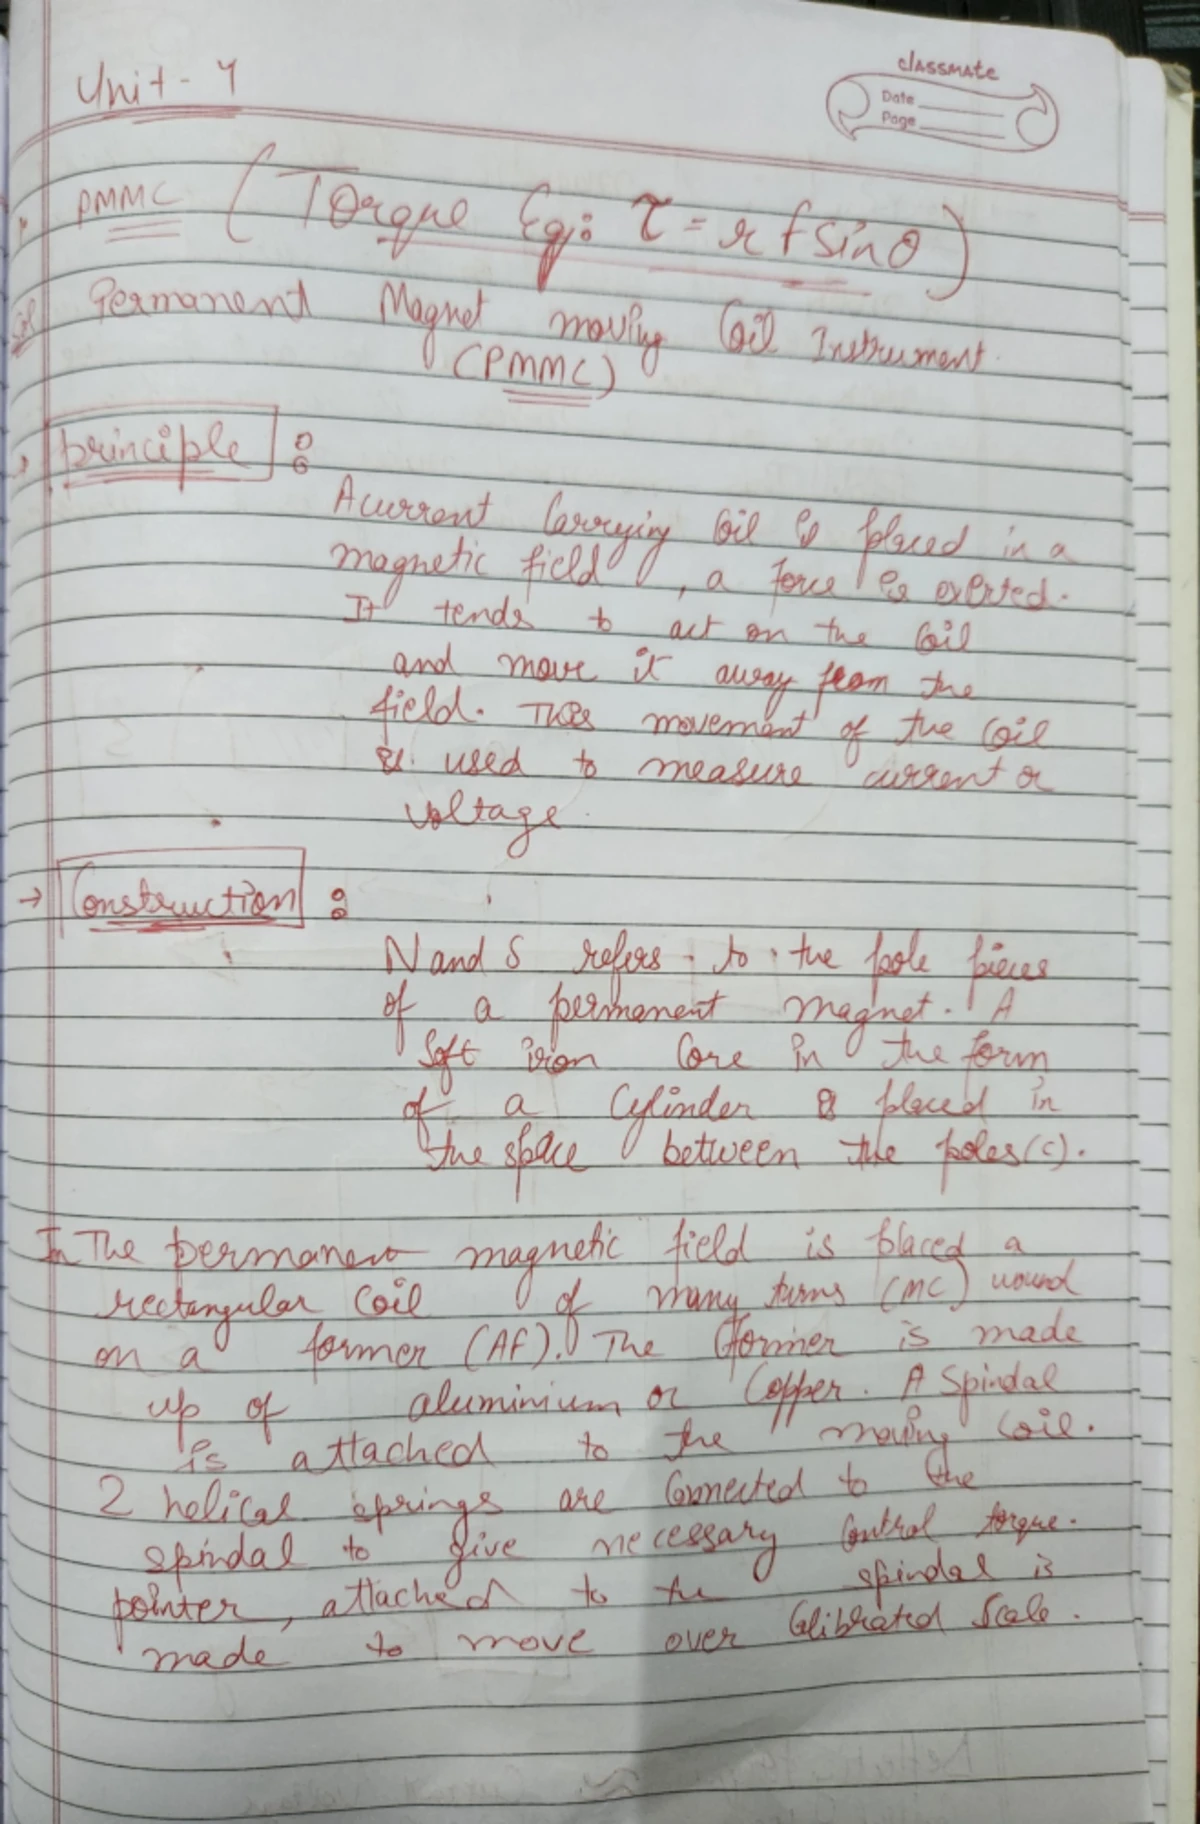 Unit - 4
classmate
Date
Page
PMMC (Torque Eq: τ = r f sinθ)
Permanent Magnet moving Coil Instrument.
(PMMC)
principle :
A current carrying Coil is placed in a
magnetic field, a force is exerted.
It tends to act on the Coil
and move it away from the
field. This movement of the Coil
is used to measure current or
voltage.
→ Construction :
N and S refers to the pole pieces
of a permanent magnet. A
Soft iron Core in the form
of a Cylinder is placed in
the space between the poles (c).
In The permanent magnetic field is placed a
rectangular Coil of many turns (MC) wound
on a former (AF). The former is made
up of aluminium or Copper. A Spindal
is attached to the moving coil.
2 helical springs are Connected to the
spindal to give necessary Control torque.
pointer, attached to the spindal is
made to move over Calibrated Scale.